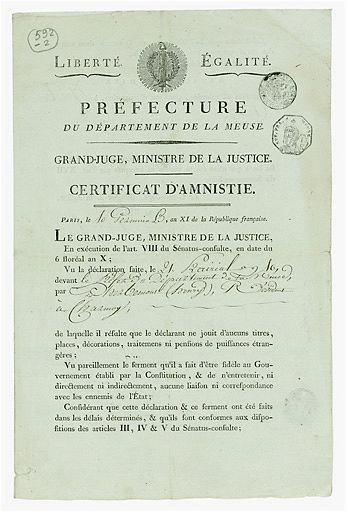 592
-2
LIBERTÉ. ÉGALITÉ.
PRÉFECTURE
DU DÉPARTEMENT DE LA MEUSE.
GRAND-JUGE, MINISTRE DE LA JUSTICE.
CERTIFICAT D'AMNISTIE.
PARIS, le 10 an XI de la République française.
LE GRAND-JUGE, MINISTRE DE LA JUSTICE,
En exécution de l'art. VIII du Sénatus-consulte, en date du
6 floréal an X;
Vu la déclaration faite, le 21 Prairial
devant le Préfet du Département de la Meuse
par
à
de laquelle il résulte que le déclarant ne jouit d'aucuns titres,
places, décorations, traitemens ni pensions de puissances étran-
gères;
Vu pareillement le serment qu'il a fait d'être fidèle au Gou-
vernement établi par la Constitution, & de n'entretenir, ni
directement ni indirectement, aucune liaison ni correspondance
avec les ennemis de l'État;
Considérant que cette déclaration & ce serment ont été faits
dans les délais déterminés, & qu'ils sont conformes aux dispo-
sitions des articles III, IV & V du Sénatus-consulte;